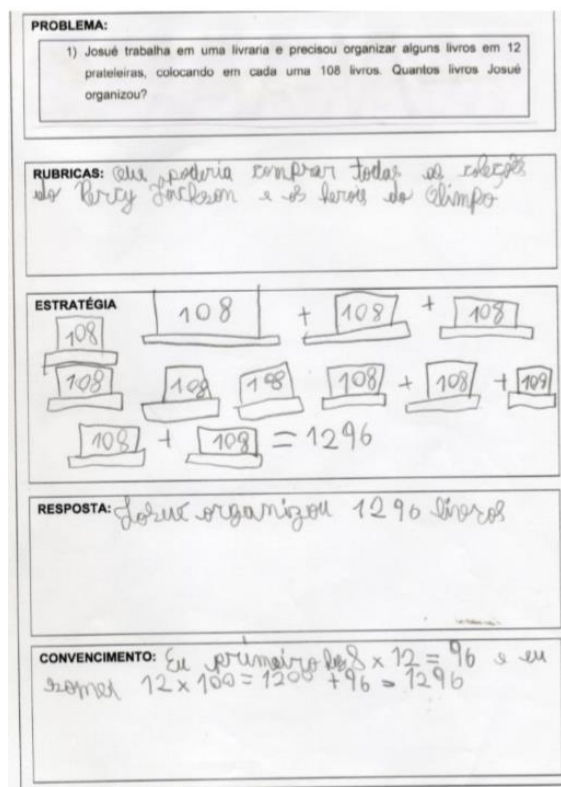 PROBLEMA:
1) Josué trabalha em uma livraria e precisou organizar alguns livros em 12
prateleiras, colocando em cada uma 108 livros. Quantos livros Josué
organizou?
RUBRICAS: Que poderia comprar todas as coleções
do Percy Jackson e os herois do Olimpo
ESTRATÉGIA
108 108 + 108 + 108
108 108 108 108 + 108 + 108
108 + 108 = 1296
RESPOSTA: Josué organizou 1296 livros
CONVENCIMENTO: Eu primeiro 8 x 12 = 96 e eu
somei 12 x 100 = 1200 + 96 = 1296